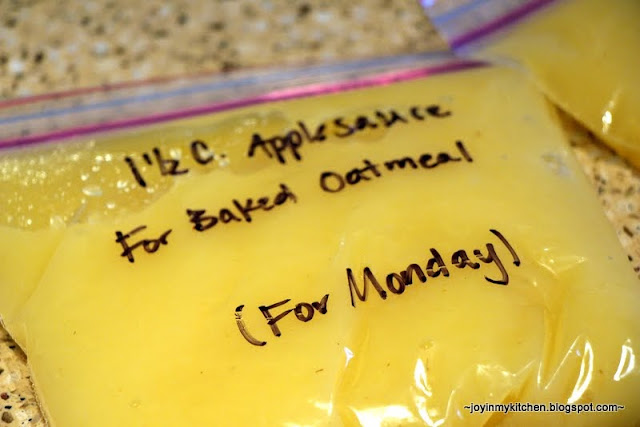 1 1/2 C. Applesauce
For Baked Oatmeal
(For Monday)
~joyinmykitchen.blogspot.com~